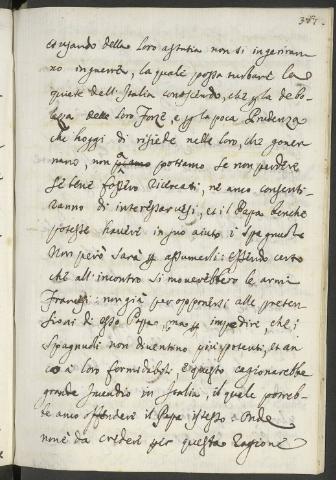 387.
et usando della loro astutia non si ingeriran-
no in guerra, la quale possa turbare la
quiete dell'Italia conoscendo, che p la debo-
lezza delle loro forze, e p la poca Prudenza
che hoggi dì risiede nelle loro, che gover-
nano, non potriano se non perdere
Se bene fossero ricercati, nè anco consenti-
ranno di interessarvisi, et il Papa benche
potesse havere in suo aiuto i Spagnuoli
Non però sarà p assumerli: Essendo certo
che all'incontro si moverebbero le armi
Francesi: non già per opponersi alle preten-
sioni di esso Papa, ma p impedire, che i
Spagnuoli non diventino più potenti, et an
co a loro formidabili, e questo cagionarebbe
grande Incendio in Italia, il quale potreb-
be anco offendere il Papa istesso. Onde
non è da credere per questa ragione